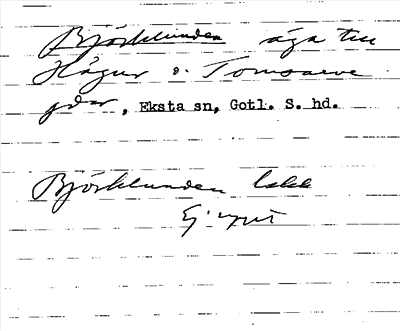 Björklunden äga till
Hägur o. Tomsarve
gdar, Eksta sn, Gotl. S. hd.
Björklunden
Ej upps